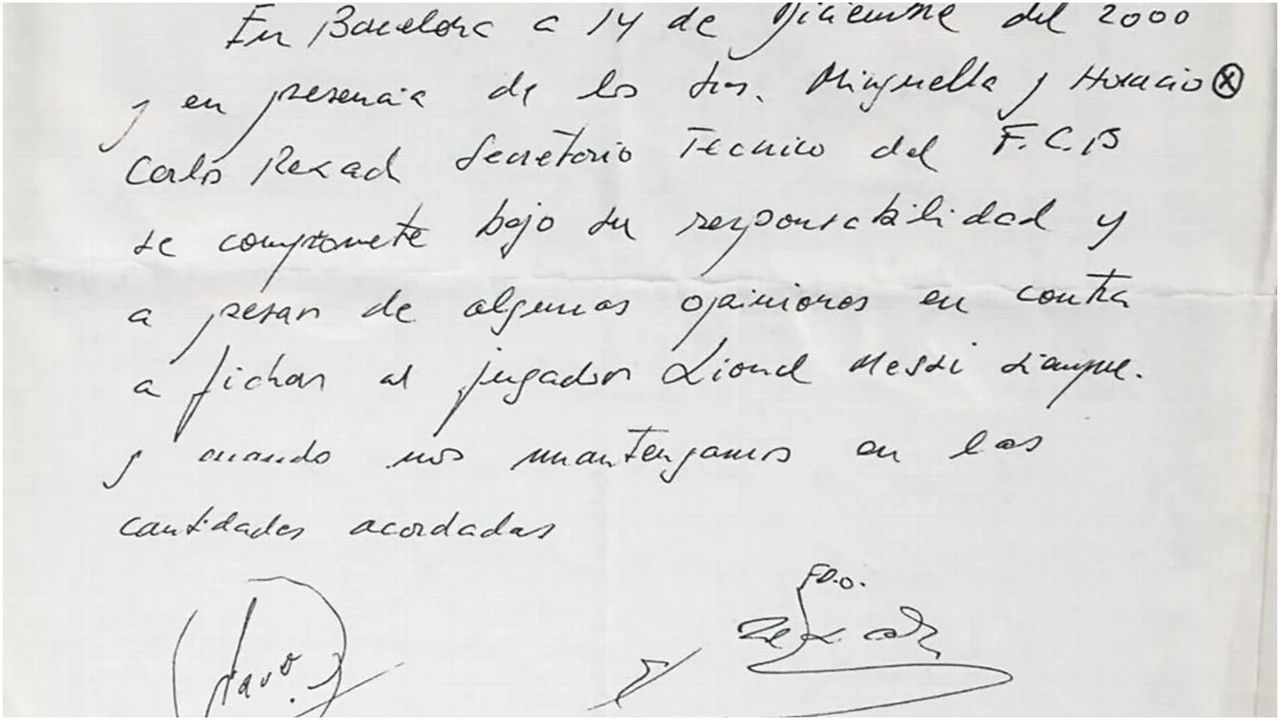 En Barcelona a 14 de Diciembre del 2000
y en presencia de los Srs. Minguella y Horacio ⓧ
Carlos Rexach Secretario Tecnico del F.C.B
se compromete bajo su responsabilidad y
a pesar de algunas opiniones en contra
a fichar al jugador Lionel Messi siempre.
y cuando nos mantengamos en las
cantidades acordadas
FDO.